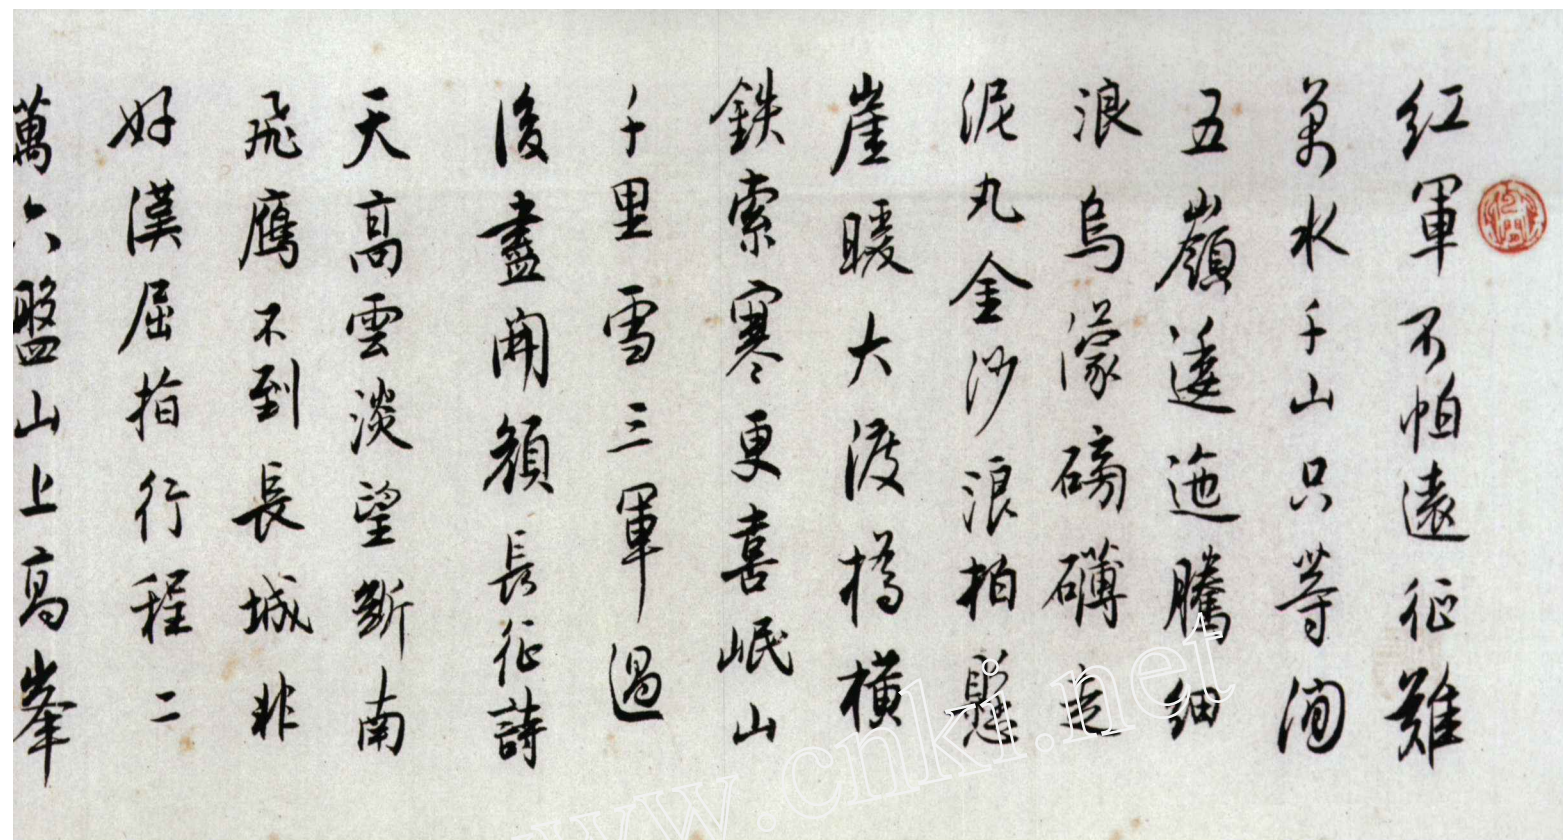 红軍不怕遠征難
萬水千山只等闲
五嶺逶迤騰細
浪烏濛磅礴走
泥丸金沙浪柏懸
崖暖大渡橋橫
鉄索寒更喜岷山
千里雪三軍過
後盡開顏長征詩
天高雲淡望斷南
飛鴈不到長城非
好漢屈指行程二
萬六盤山上高峯
www.cnki.net